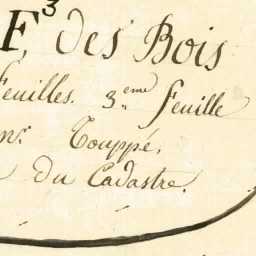 F,³ des Bois
Feuilles. 3.eme Feuille
mr. Touppé.
du Cadastre.